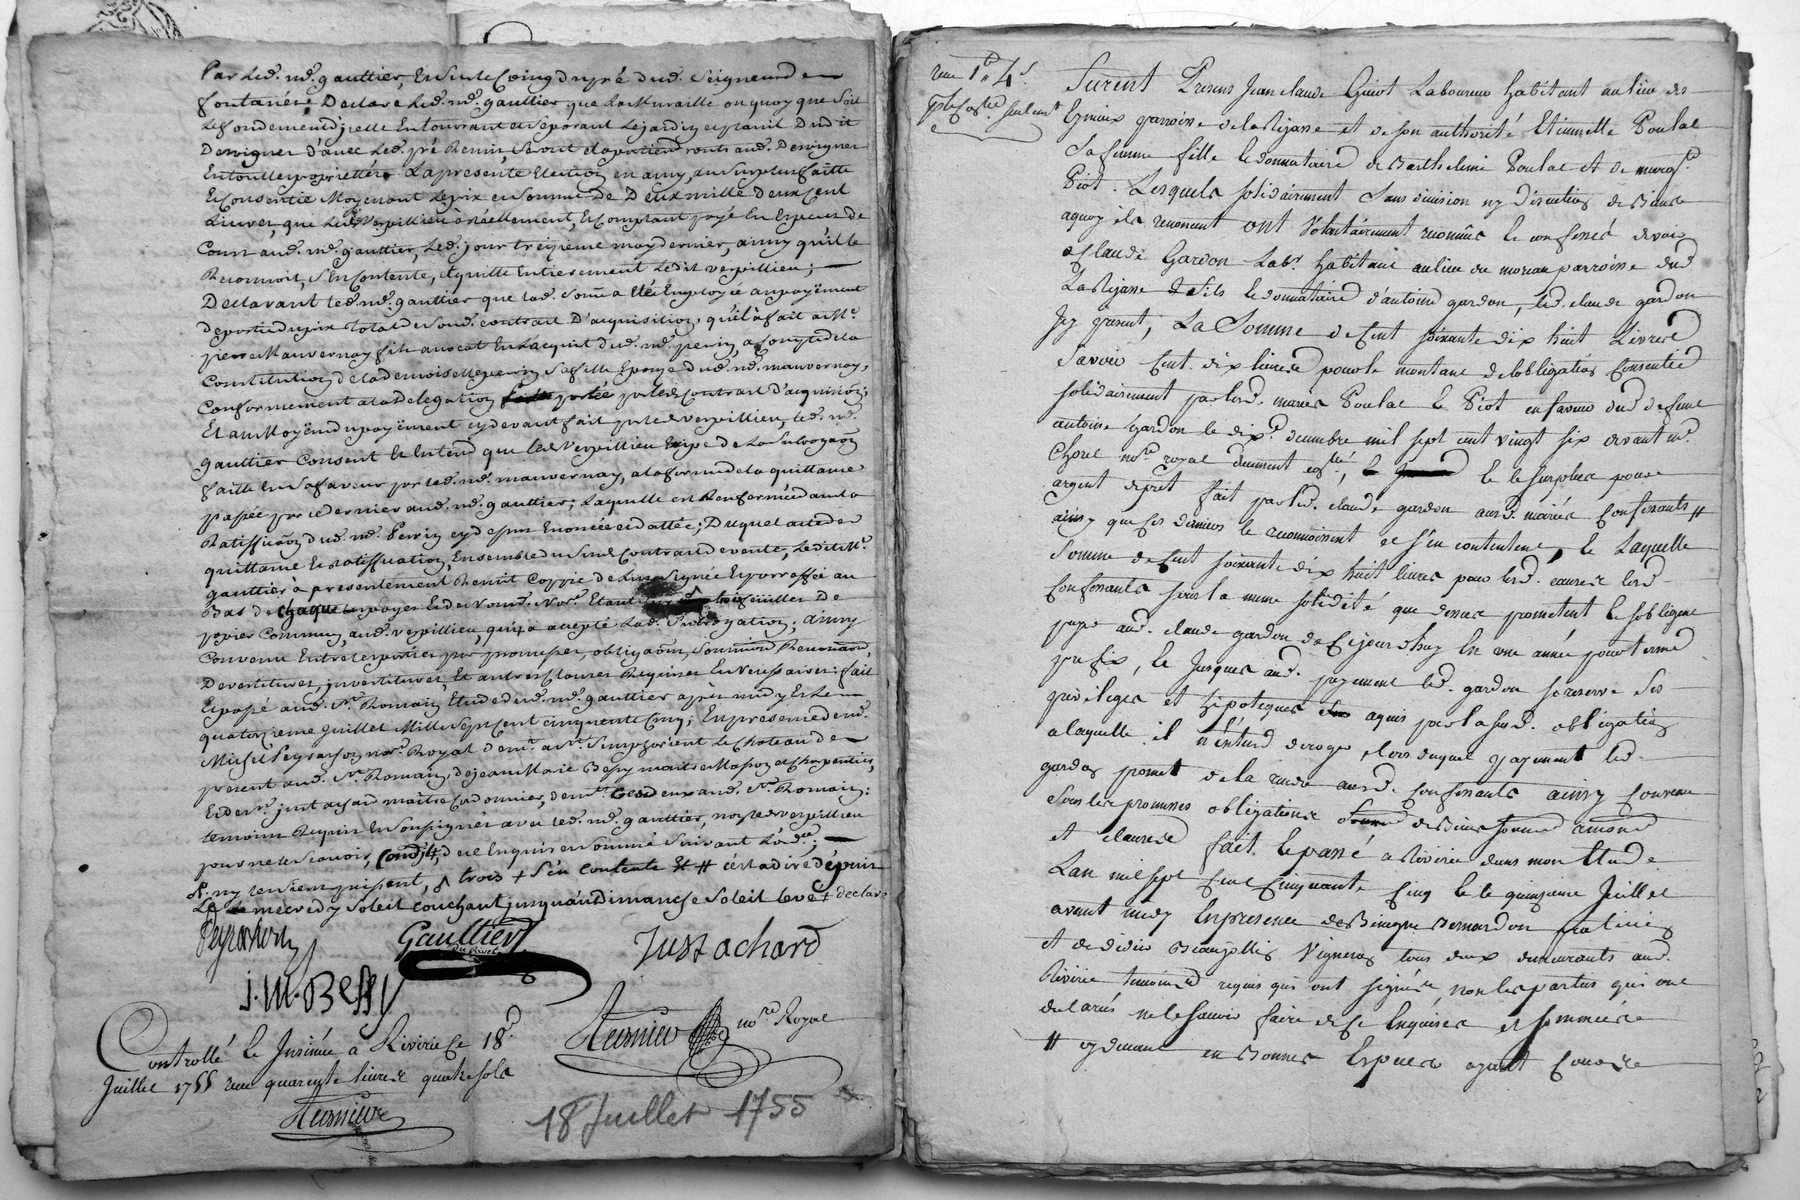 Par led. md. gauttier, Ensuite Coing dupré dud. Seigneur de
fontanére; Declare Led. md. gauttier que La Muraille on quoy que Soit
Le fondement d'jcelle Entourant et Séparant Lejardin et planil Dudit
Dervigner d'avec Led. pré Remis Seront et apartiendront aud. Dervigner
En toutte proprietté; La presente Election en ainsy au Surplus faitte
Et Consentie Moyenant Leprix et Somme de Deux mille deux cent
Livres, que Led. Verpillieu à réellement, Et Comptant payé En Especes de
Cour aud. md. gauttier, Led. jour treizieme may dernier, ainsy qu'il le
Reconnoit, S'en Contente, Et quitte Entierement Ledit verpillieu;
Declarant led. md. gauttier que lad. Somme a été Employée au payëment
de partie du prix total de Sond. contrat D'acquisition, qu'il à fait a Me.
pierre Mauvernay fils avocat En Lacquit dud. md. perrin, a Compte de la
Constitution de la demoiselle perrin Safille Epouse dud. md. mauvernay,
Conformement a la delegation portée par led. Contrat d'acquisition;
Et au Moyen du payëment cy devant fait par led. verpillieu, led. md.
gauttier Consent Et Entend que led. Verpillieu de La Subrogaon
faitte En Safaveur par led. md. mauvernay, a la forme de la quittance
passée par ce dernier aud. md. gauttier; Laquelle est Renfermée dans la
Ratiffication dud. md. Perrin cy dessus Enoncée et dattée; Duquel acte de
quittance Et ratiffication, Ensemble du Susd. Contrat de vente, Ledit Me.
gauttier à presentement Remit Coppie de Luy Signée Et parraffée au
Bas de chaque page Et de Nousd. Nore. Etant trois feuilles de
papier Commun, aud. verpillieu, qui a accepté Lad. Subrogation; ainsy
Convenu Entre les parties par promesses, obligaons, Soumissions Renonciaons,
Devestitures, jnvestitures, Et autres Clauses Requises Et Necessaires: fait
Et passé aud. St. Romain Etude dud. md. gauttier après midy, Et Le
quatorzieme Juillet Mille Sept Cent cinquente Cinq; En presence de md.
Michel Peyrachon nore. Royal demt. a St. Simphorient Le Chateau de
present aud. St. Romain, de jean Marie Bessy maitre Masson et Charpentier,
Et de just achard maitre Cordonnier, demt. tous deux aud. St. Romain;
temoins Requis Et Soussignés avec led. md. gauttier, non led. verpillieu
pour ne le Scavoir, de ce Enquis et Sommé Suivant L'ord.ce;
trois + S'en contente Et # c'est a dire depuis
Le mecredy Soleil couchant jusqu'au dimanche Soleil levé + declare
Peyrachon
Gauttier
Just achard
J. M. Bessy
Meusnieu nore Royal
Controllé le Insinué à Riverie Ce 18e.
Juillet 1755 reçu quarente livres quatre sols
Meusnieu
18 Juillet 1755
reçu 1# 4s.
Furent Presens Jean claude Guiot Laboureur habitant au lieu des
parroisse de la Rajasse et de son authorité Etiennette Poulat
Sa femme fille le donnataire de Barthelemi Poulat et de marg.te
Piot. Lesquels solidairement Sans division ny discution de Biens
aquoy ils renoncent ont Volontairement reconnus le confessé devoir
a Claude Gardon Labr. habitant au lieu du moreau parroisse dud.
La Rajasse & fils le donnataire d'antoine gardon, led. claude gardon
Jcy present, La Somme de Cent soixante dix huit Livres
Savoir Cent dix livres pour le montant de lobligation Consentie
solidairement par lesd. mariés Poulat le Piot en faveur dud. defunt
antoine gardon le dixe. decembre mil sept cent vingt six devant me.
Chorel nore. royal duement collé, le le surplus pour
argent de pret fait par led. claude gardon ausd. mariés Confessants #
ainsy que Ces derniers le reconnoissent et s'en contentent, le Laquelle
Somme de Cent soixante dix huit livres pour lesd. causes lesd.
Confessants sous la meme solidité que dessus promettent le sobligent
payer aud. claude gardon de Cejourdhuy En une année pour terme
prefix, le Jusques aud. payement led. gardon se reserve Ses
privileges et hipoteques aquis par la susd. obligation
a laquelle il n'entend deroger, lors duquel payement led.
gardon promet de la rendre ausd. Confessants ainsy Convenu
Sous les promesses obligations de Biens soumis renonce
et clauses fait le passé a Riverie dans mon Etude
Lan mil sept Cent Cinquante Cinq le le quinzieme Juillet
avant midy En presence de Benoit Bernardon praticien
et de didier Beaujollin Vigneron tous deux demeurants aud.
Riverie temoins requis qui ont signés, non les parties qui ont
declarés ne le savoir faire de Ce Enquises et sommées
# cydevant en Bonnes Especes ayant Cours